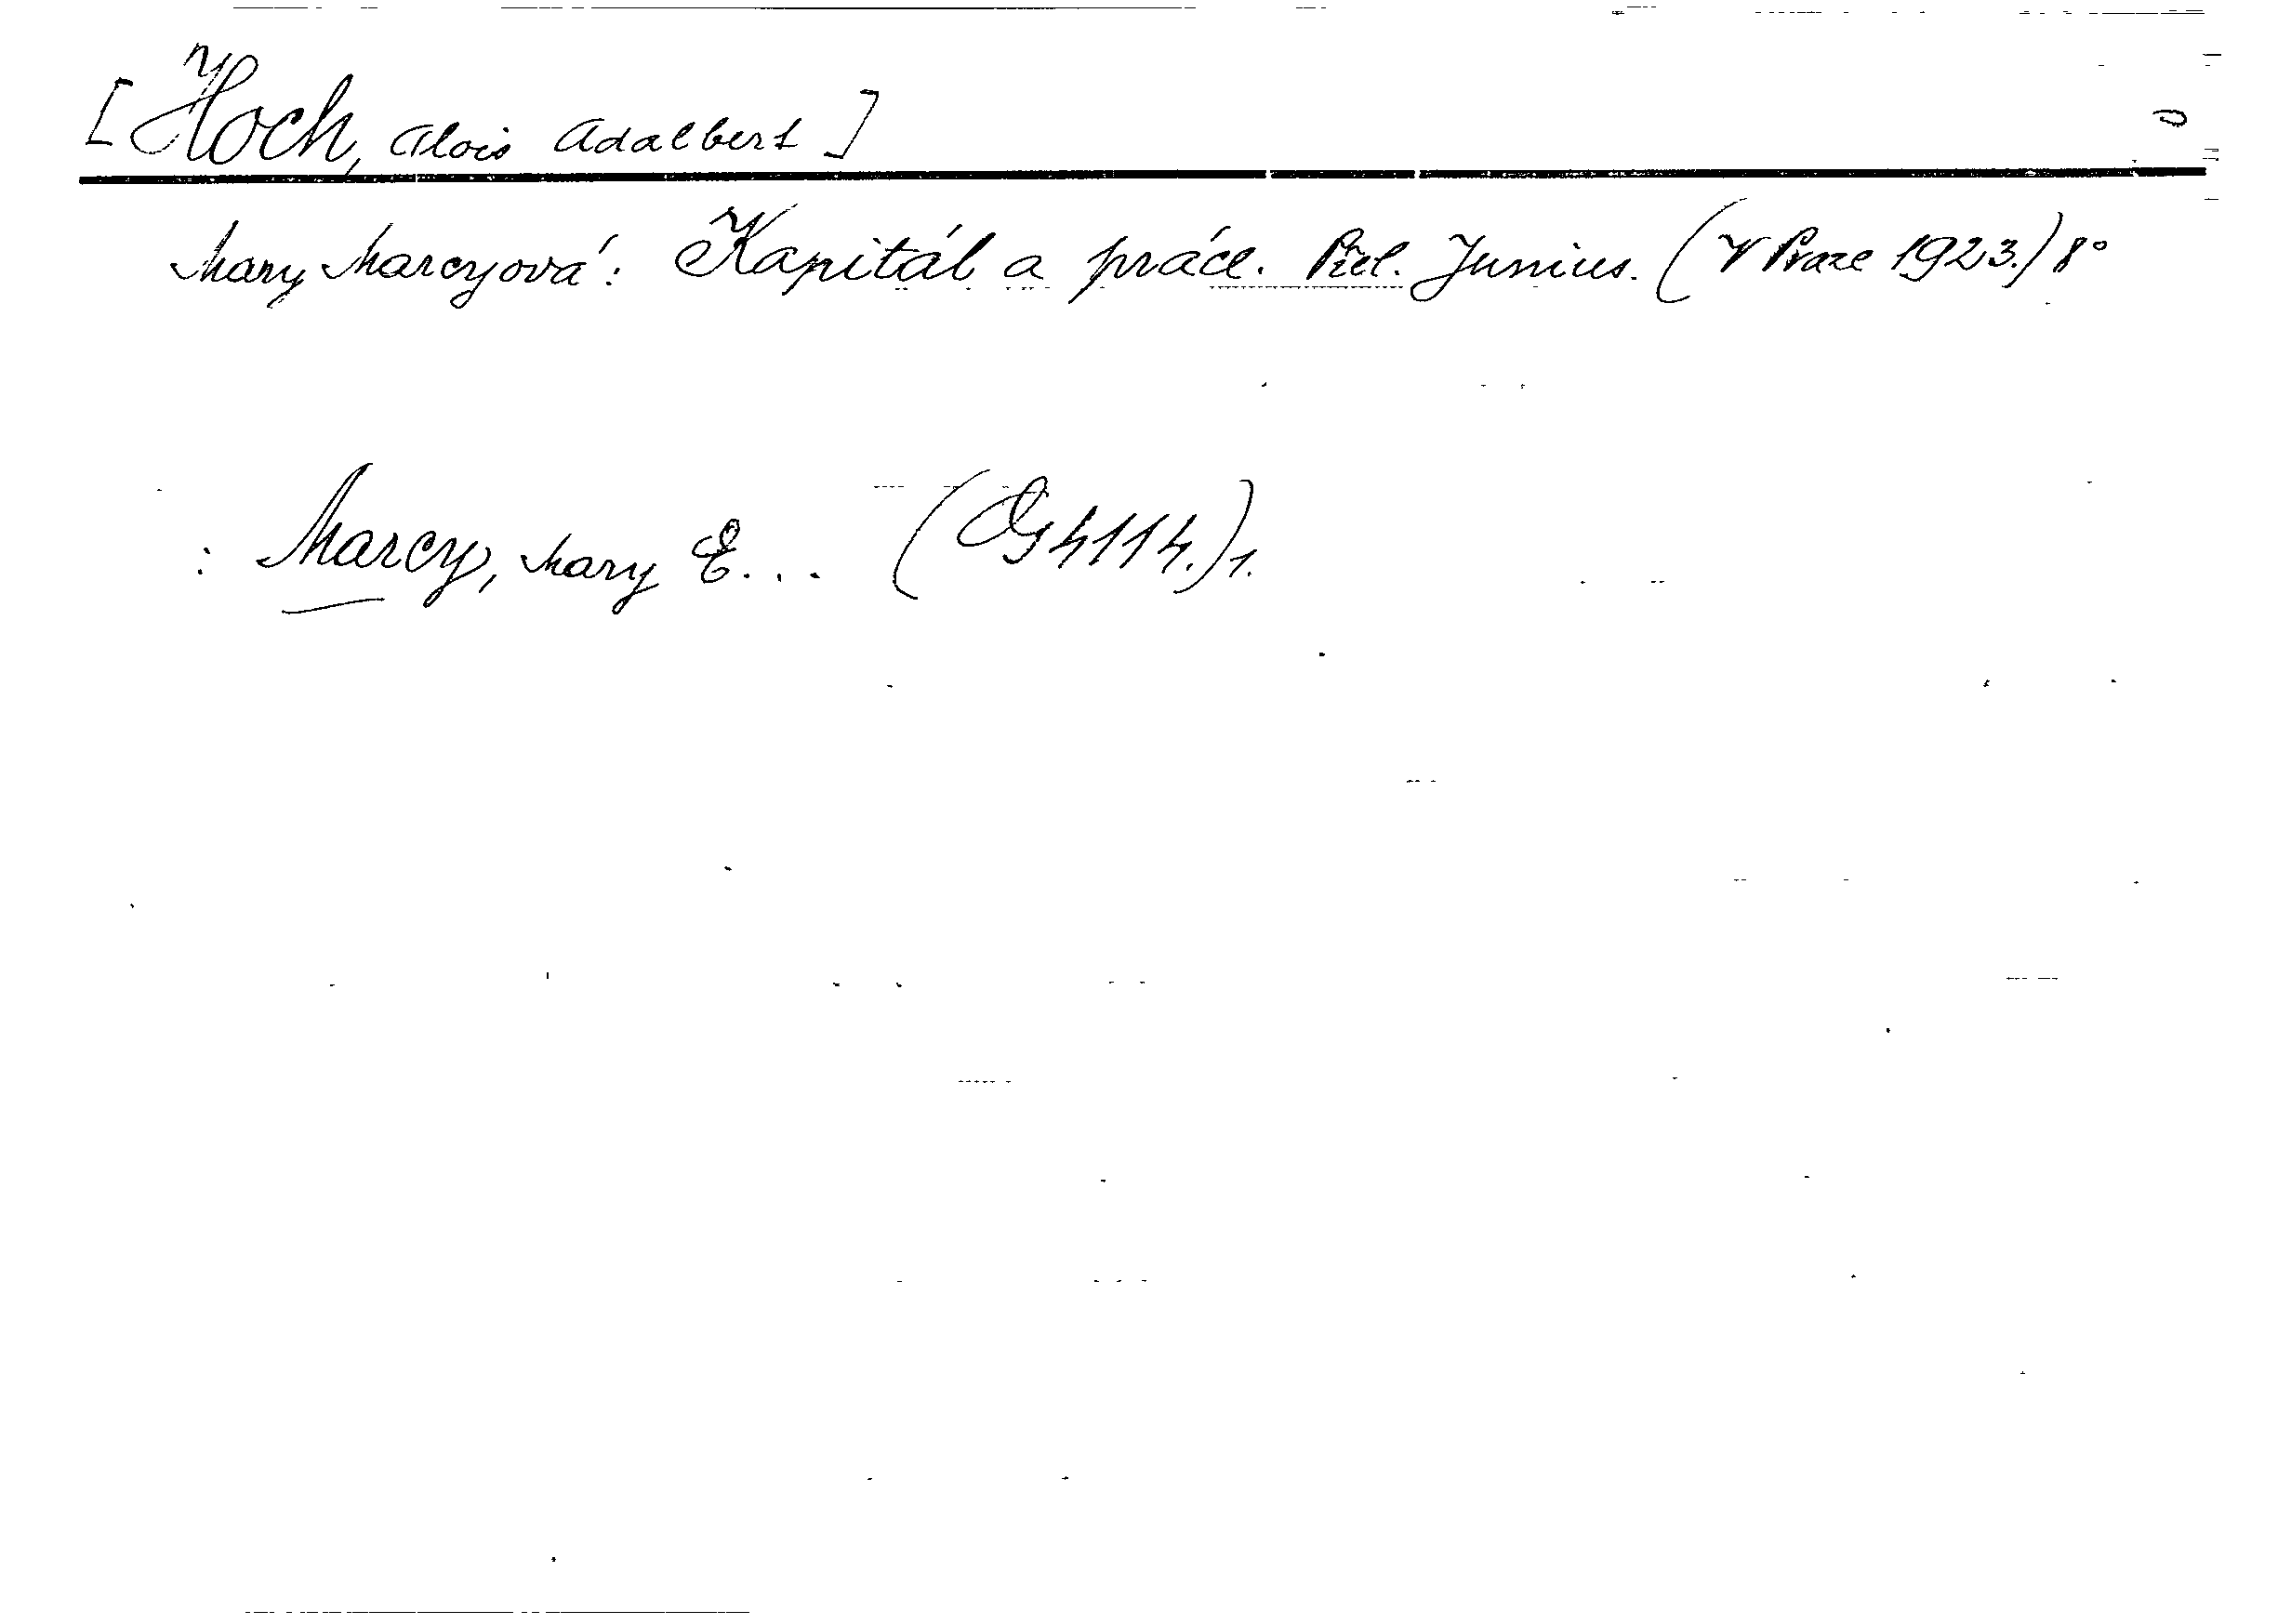 [Hoch, Alois Adalbert]
Mary Marcyová: Kapitál a práce. Přel. Junius. (V Praze 1923.) 8°
: Marcy, Mary E... (G 4114.) 1.